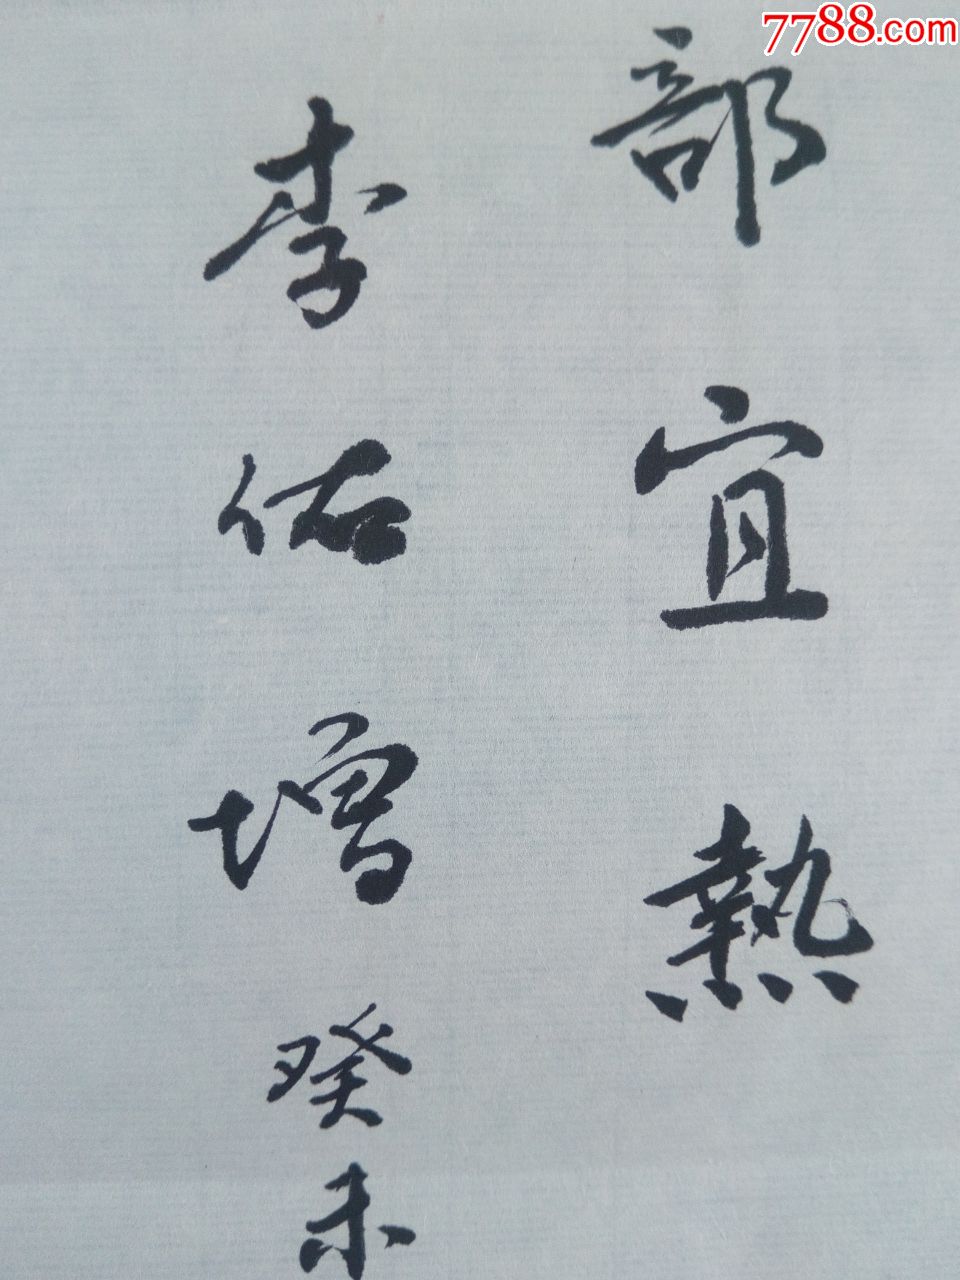 7788.com
部宜熱
李佑增癸未